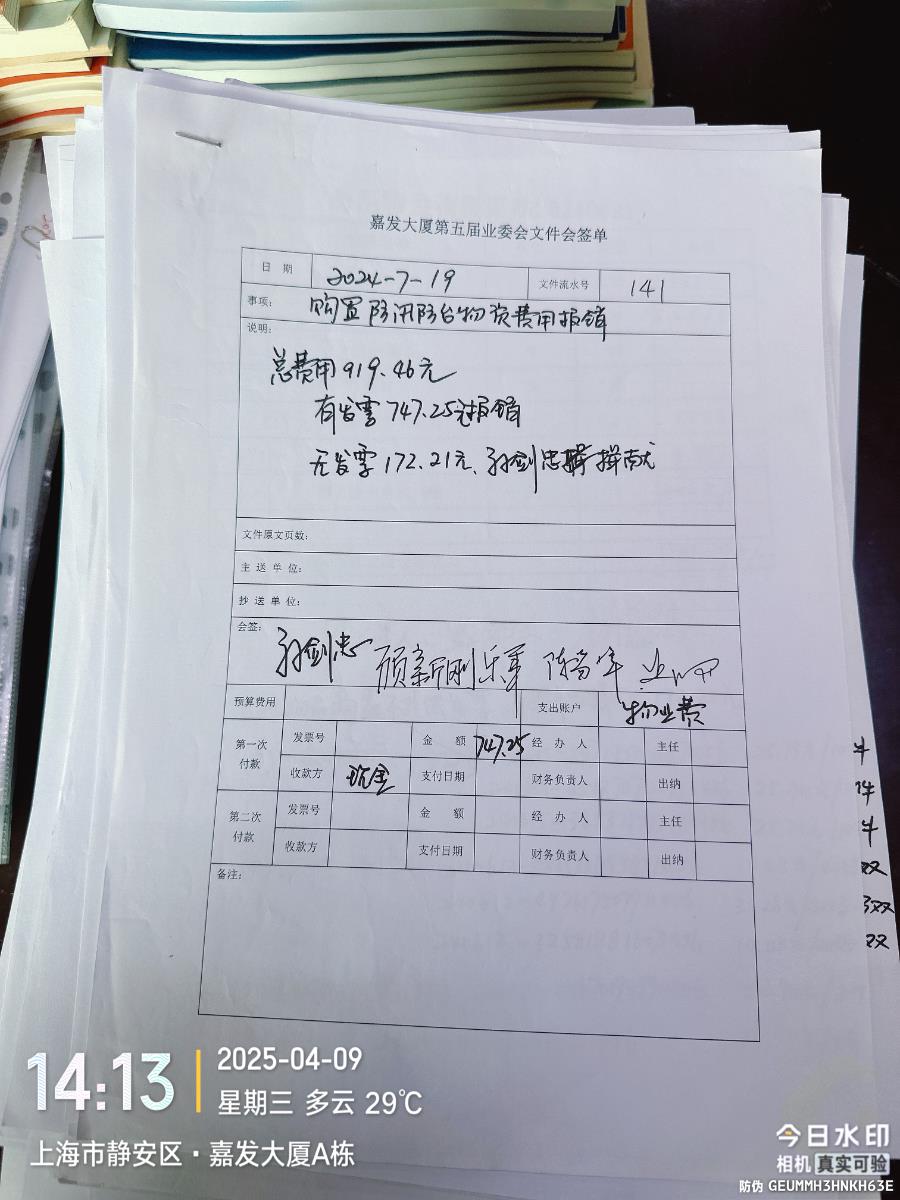 嘉发大厦第五届业委会文件会签单
日 期 2024-7-19 文件流水号 141
事项: 购置防汛防台物资费用报销
说明:
总费用919.46元
有发票747.25元报销
无发票172.21元、孙剑忠 捐献
文件原文页数:
主 送 单 位:
抄 送 单 位:
会签: 孙剑忠 顾新刚 乐军
预算费用 支出账户 物业费
第一次付款 发票号 金 额 747.25 经 办 人 主任
收款方 现金 支付日期 财务负责人 出纳
第二次付款 发票号 金 额 经 办 人 主任
收款方 支付日期 财务负责人 出纳
备注:
件
双
3双
双
14:13
2025-04-09
星期三 多云 29℃
上海市静安区·嘉发大厦A栋
今日水印
相机 真实可验
防伪 GEUMMH3HNKH63E